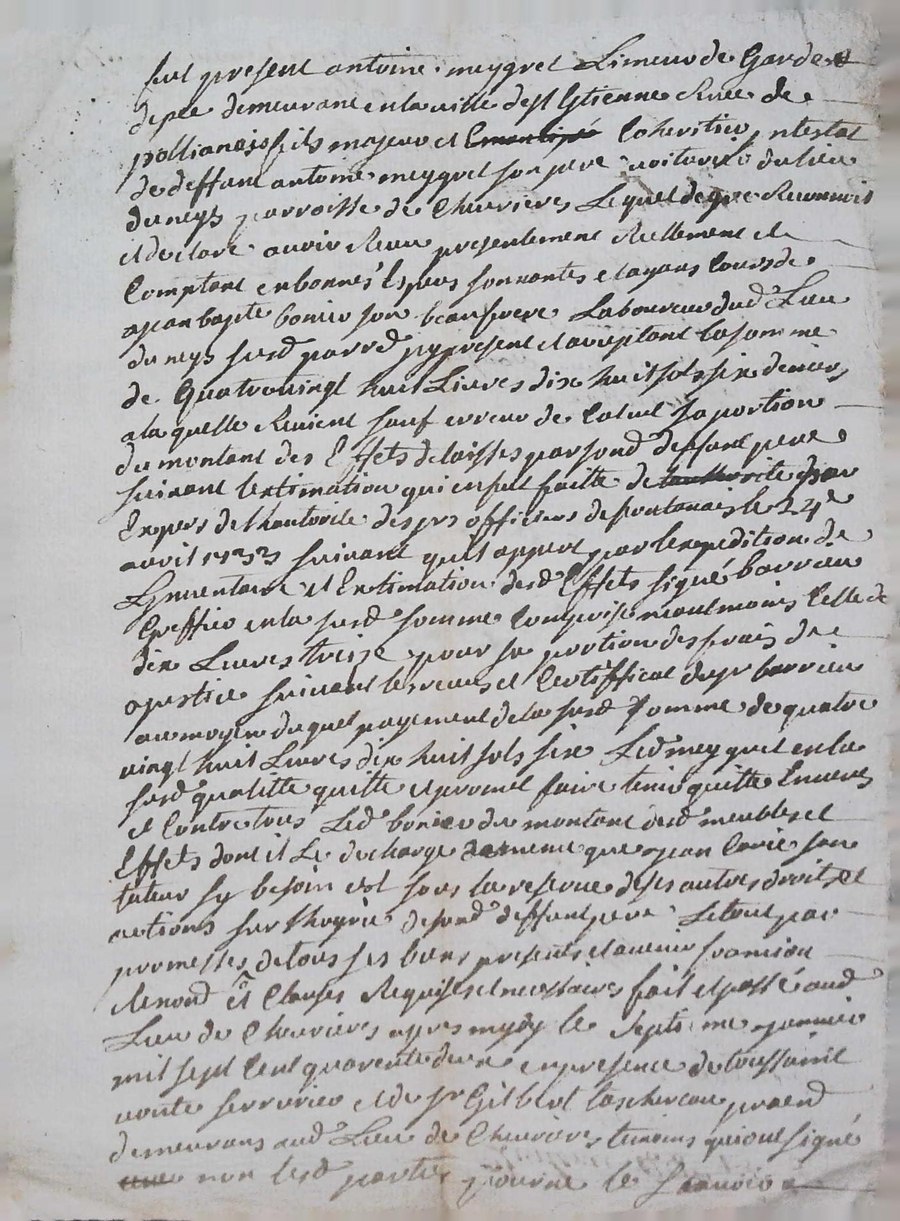 fut present antoine meygret Limeur de Garde
depée demeurant en la ville de st Etienne Ruee de
pollianais fils majeur et coheritier intestat
de deffunt antoine meygret son pere voiturié du lieu
du neyp parroisse de Chevrieres Lequel de gre Reconnoit
et declare avoir Receu presentement Reellement et
Comptant en bonnes Espees sonnantes et ayans Cours de
a jean bapte bonier son beaufrere Laboureur dud. Lieu
du neyp susd. parr. jcy present et acceptant la somme
de Quatrevingt huit Livres dix huit sols six deniers
a la quelle Revient sauf erreur de Calcul sa portion
du montant des Effets delaissés par sond. deffunt pere
suivant l'estimation qui en fut faitte de
Expers de l'hautorité des srs officiers de fontanais le 24e
avril 1733 suivant quil appert par l'expedition de
Lynventaire et Extimation desd. Effets signé barrieu
Greffier en la susd. somme Comprise neantmoins Celle de
dix Livres treize pour sa portion des frais de
justice suivant les receus et Certifficat du sr barrieu
au moyen duquel payement de la susd. somme de quatre
vingt huit Livres dix huit sols six Led. meygret en la
susd. qualitté quitte et promet faire tenir quitte Envers
et Contre tous Led. bonier du montant desd. meubles et
Effets dont il Le decharge de meme que jean son
tuteur sy besoin est sous la reserve de ses autres droits et
actions sur l'hoyrie de sond. deffunt pere Le tout par
promesses de tous ses biens presents et avenir
Renond. et Clauses Requises et necessaires fait et passé aud.
Lieu de Chevrieres apres mydy le septieme janvier
mil sept Cent quarente deux en presence de toussaint
serrurier et de sr Gilbert
demeurans aud. Lieu de Chevrieres temoins qui ont signé
non lesd. parties pour ne le scavoir